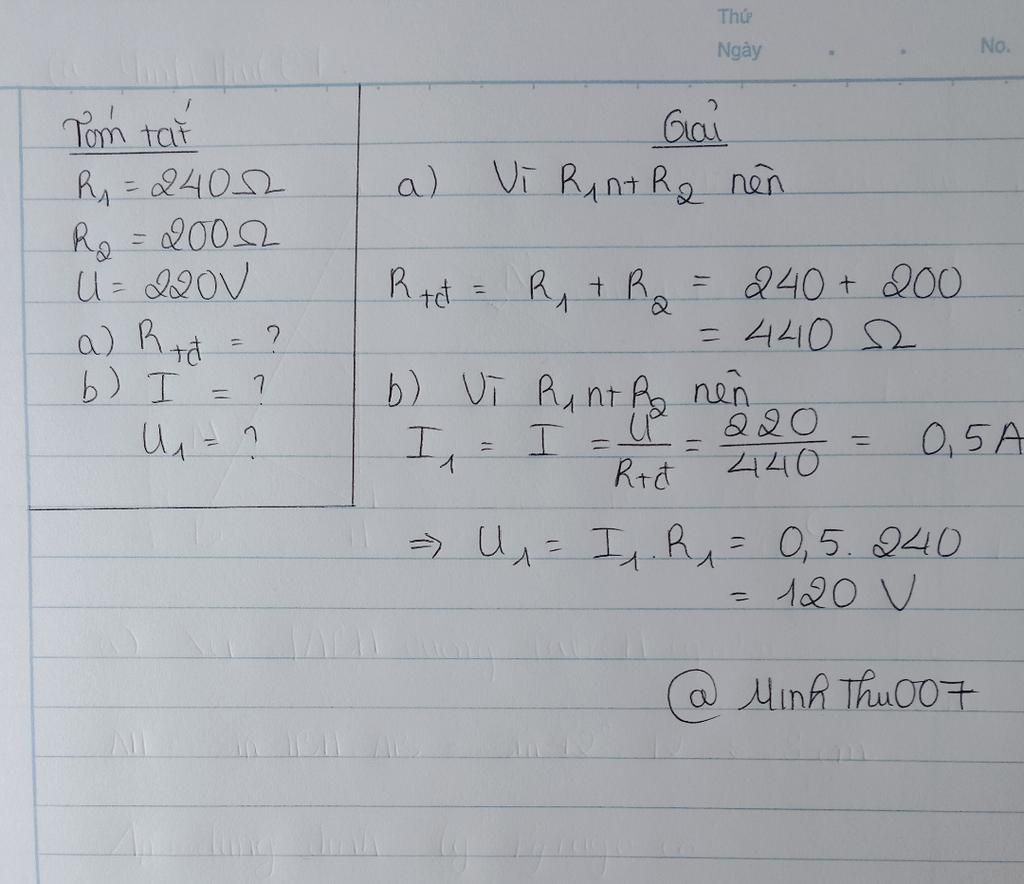 Thứ
Ngày . . No.
Tóm tắt
R₁ = 240Ω
R₂ = 200Ω
U = 220V
a) Rtđ = ?
b) I = ?
U₁ = ?
Giải
a) Vì R₁ nt R₂ nên
Rtđ = R₁ + R₂ = 240 + 200
= 440 Ω
b) Vì R₁ nt R₂ nên
I₁ = I = U/Rtđ = 220/440 = 0,5A
⇒ U₁ = I₁.R₁ = 0,5. 240
= 120 V
@ MinhThu007